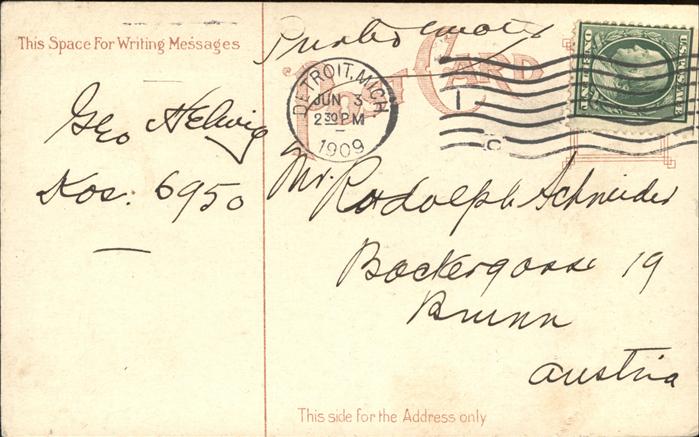 This Space For Writing Messages
Printed matter
POST CARD
DETROIT, MICH.
JUN 3
2 30 PM
1909
1
Geo Helwig
Kos. 6950
Mr. Rodolph Schneider
Backergasse 19
Brunn
Austria
This side for the Address only